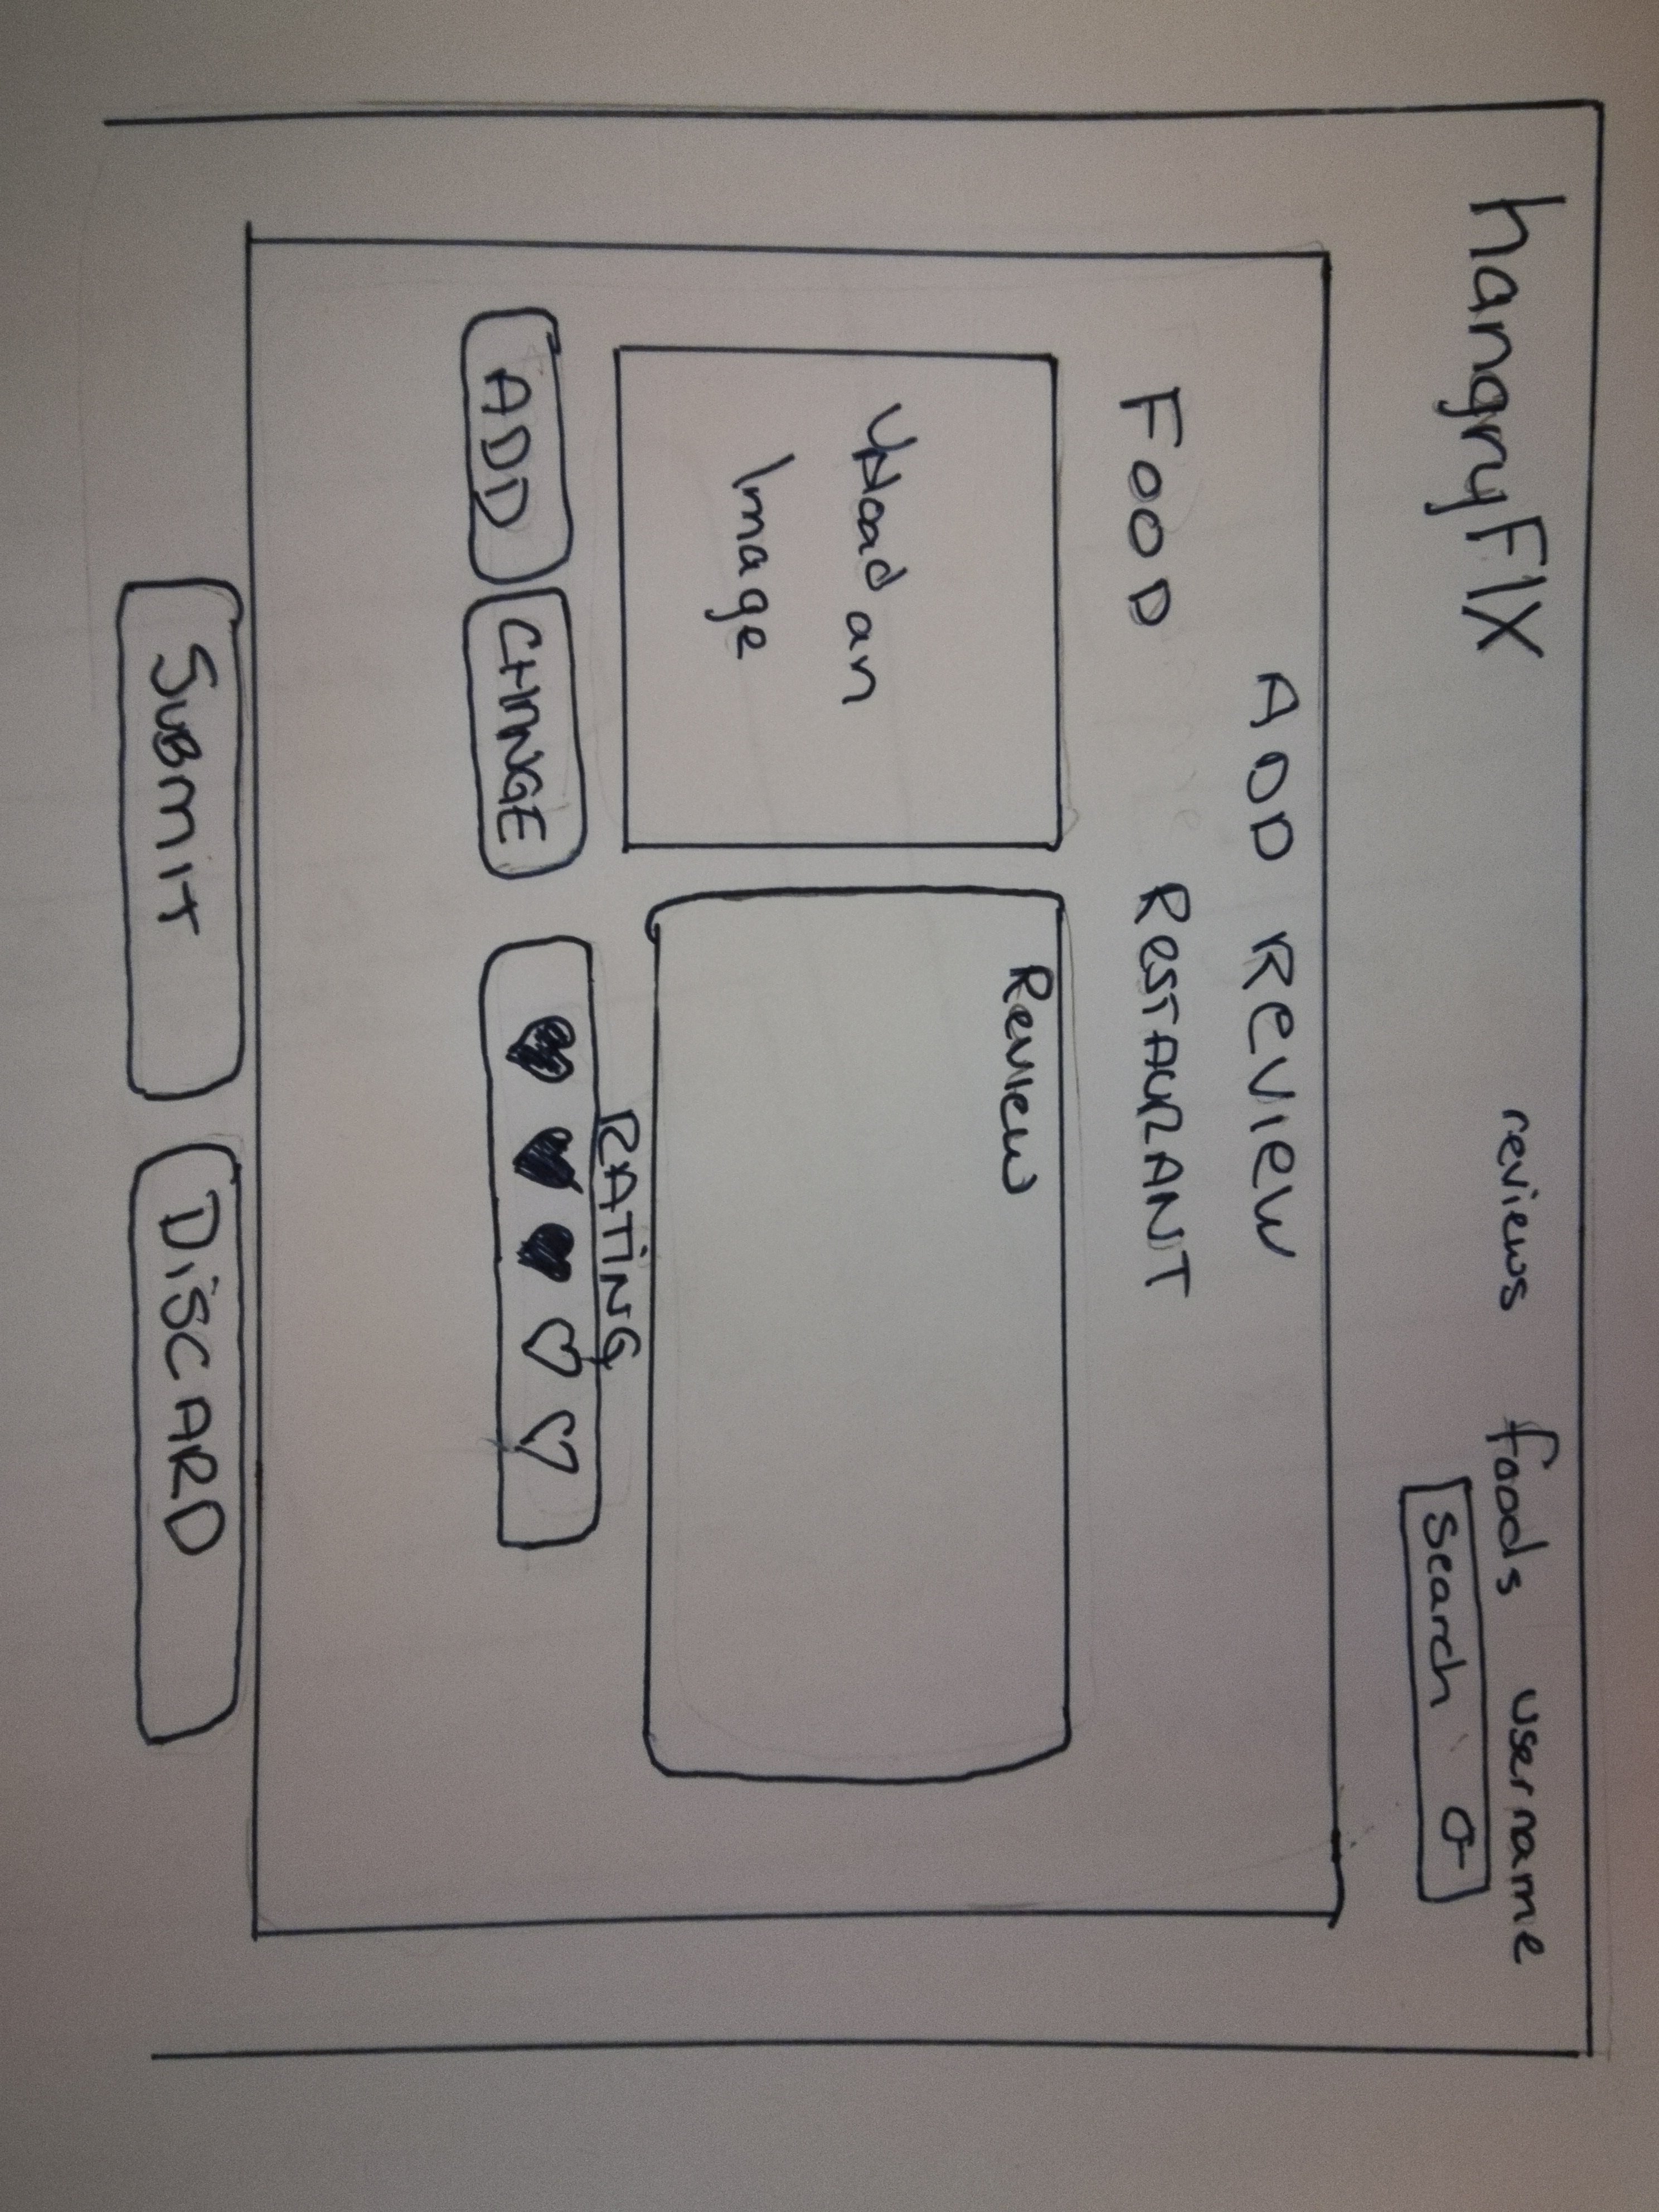 hangryFIX
reviews foods username
Search
ADD REVIEW
FOOD RESTAURANT
Upload an
Image
Review
RATING
ADD CHANGE
SUBMIT DISCARD